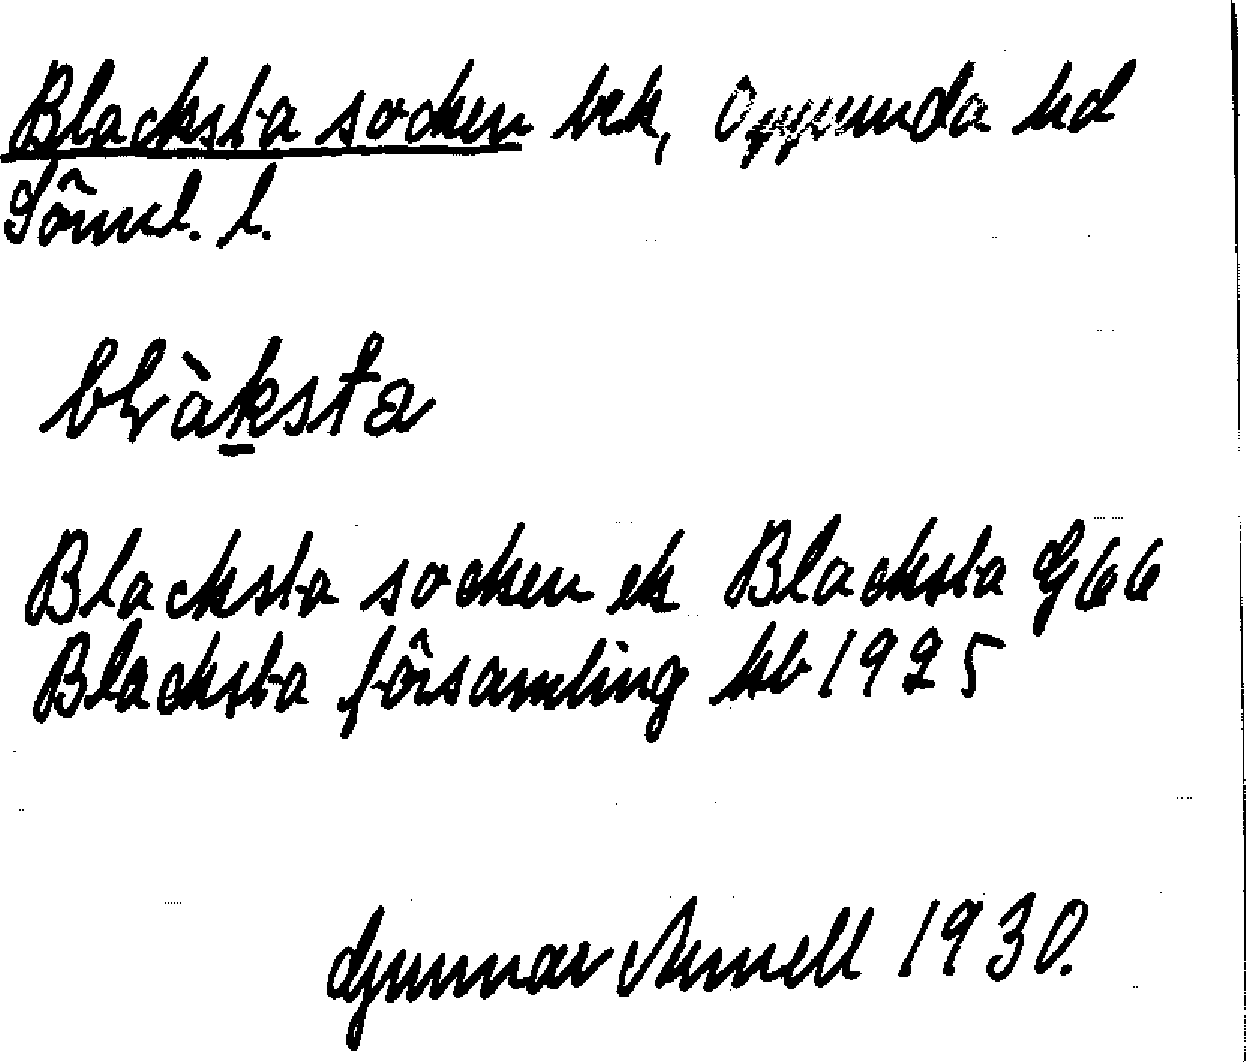 Blacksta socken bek, Oppunda hd
Söml. l.
blàksta
Blacksta socken ek Blacksta G66
Blacksta församling kb 1925
Gunnar Arnell 1930.